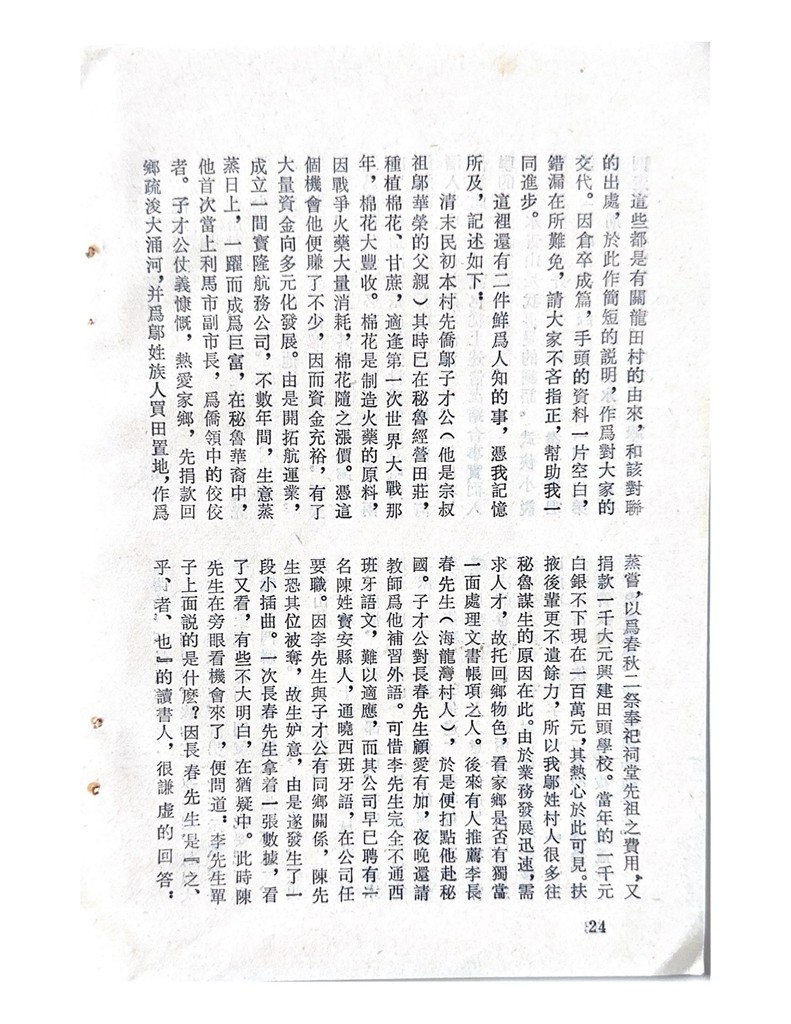 這些都是有關龍田村的由來，和該對聯
的出處，於此作簡短的説明，作爲對大家的
交代。因倉卒成篇，手頭的資料一片空白，
錯漏在所難免，請大家不吝指正，幫助我一
同進步。
這裡還有二件鮮爲人知的事，憑我記憶
所及，記述如下：
清末民初本村先僑鄔子才公（他是宗叔
祖鄔華榮的父親）其時已在秘魯經營田莊，
種植棉花、甘蔗，適逢第一次世界大戰那
年，棉花大豐收。棉花是制造火藥的原料，
因戰爭火藥大量消耗，棉花隨之漲價。憑這
個機會他便賺了不少，因而資金充裕，有了
大量資金向多元化發展。由是開拓航運業，
成立一間寶隆航務公司，不數年間，生意蒸
蒸日上，一躍而成爲巨富，在秘魯華裔中，
他首次當上利馬市副市長，爲僑領中的佼佼
者。子才公仗義慷慨，熱愛家鄉，先捐款回
鄉疏浚大涌河，并爲鄔姓族人買田置地，作爲
蒸嘗，以爲春秋二祭奉祀祠堂先祖之費用，又
捐款一千大元興建田頭學校。當年的一千元
白銀不下現在一百萬元，其熱心於此可見。扶
掖後輩更不遺餘力，所以我鄔姓村人很多往
秘魯謀生的原因在此。由於業務發展迅速，需
求人才，故托回鄉物色，看家鄉是否有獨當
一面處理文書帳項之人。後來有人推薦李長
春先生（海龍灣村人），於是便打點他赴秘
國。子才公對長春先生顧愛有加，夜晚還請
教師爲他補習外語。可惜李先生完全不通西
班牙語文，難以適應，而其公司早已聘有一
名陳姓寶安縣人，通曉西班牙語，在公司任
要職。因李先生與子才公有同鄉關係，陳先
生恐其位被奪，故生妒意，由是遂發生了一
段小插曲。一次長春先生拿着一張數據，看
了又看，有些不大明白，在猶疑中。此時陳
先生在旁眼看機會來了，便問道：李先生單
子上面説的是什麽？因長春先生是『之、
乎、者、也』的讀書人，很謙虛的回答：
24